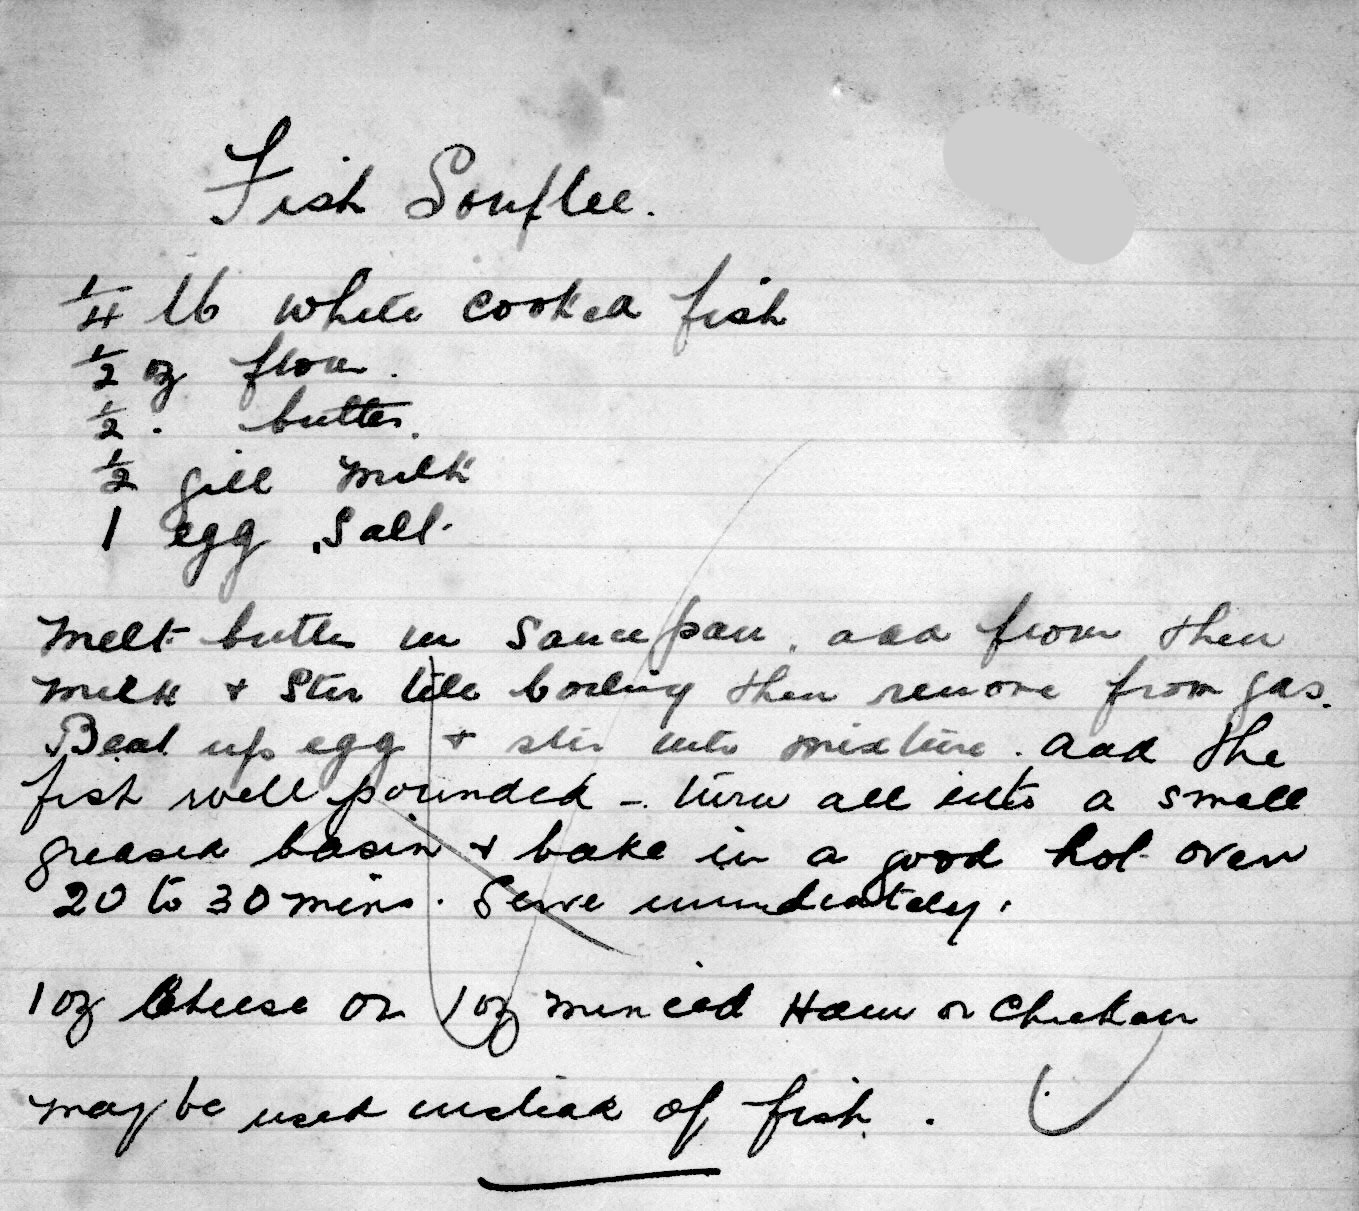 Fish Souflee.
1/4 lb white cooked fish
1/2 oz flour.
1/2 . butter.
1/2 gill milk
1 egg, salt.
Melt butter in saucepan. add flour then
milk + stir till boiling then remove from gas.
Beat up egg + stir into mixture. add the
fish well pounded - turn all into a small
greased basin + bake in a good hot oven
20 to 30 mins. Serve immediately.
1 oz Cheese or 1 oz minced Ham or Chicken
may be used instead of fish.